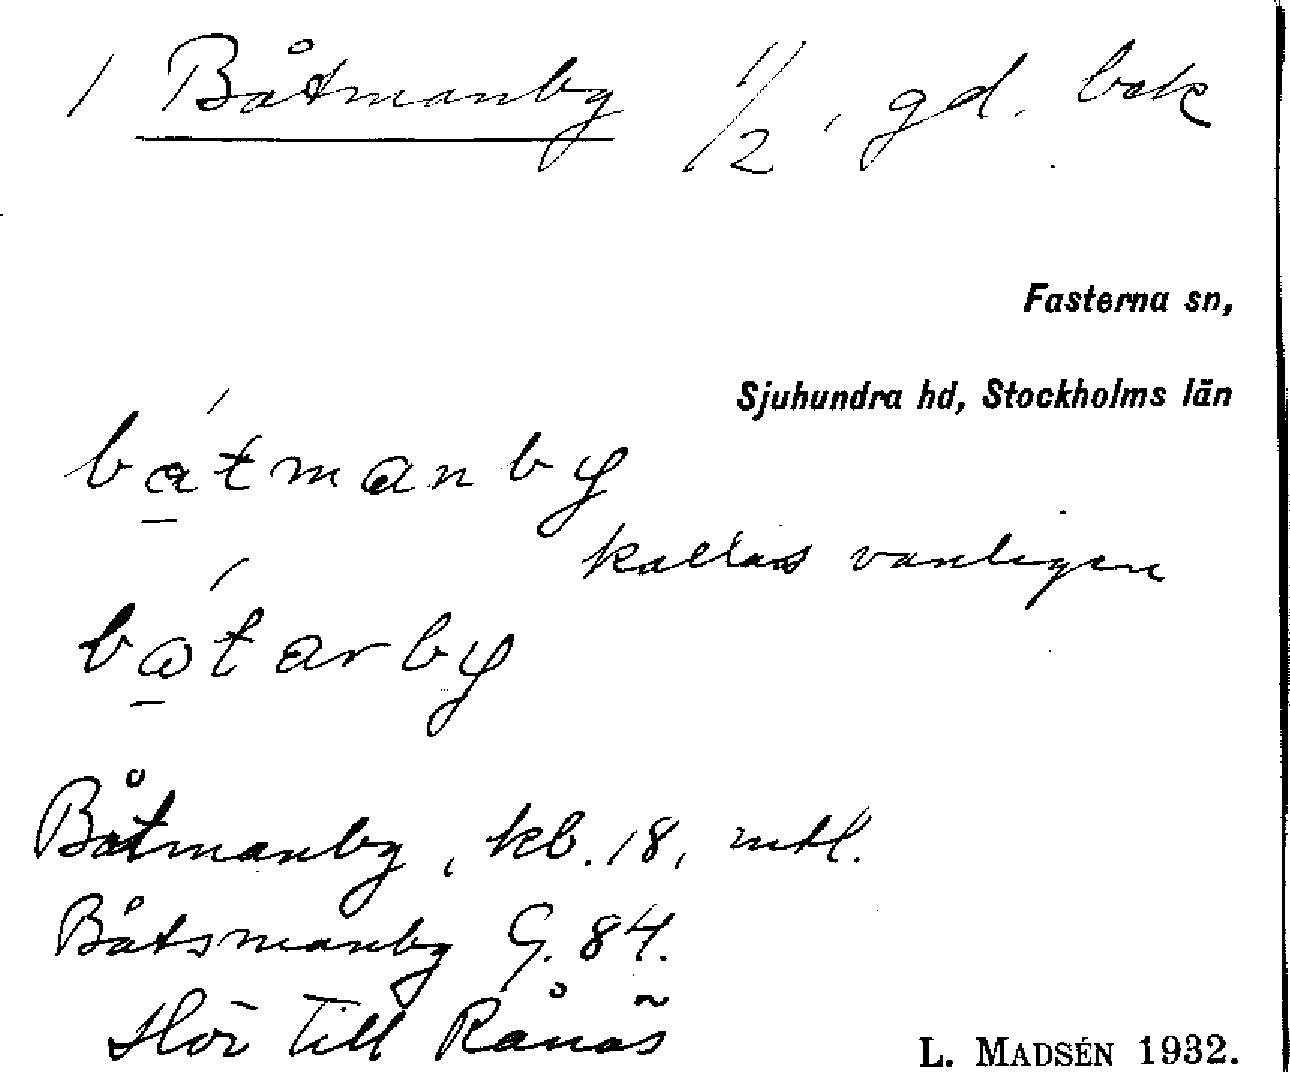 1 Båtmanby 1 1/2, gd. bok
Fasterna sn,
Sjuhundra hd, Stockholms län
båtmanby
kallas vanligen
båtarby
Båtmanby, kb. 18, mtl.
Båtsmanby G. 84.
Hör till Rånäs
L. MADSÉN 1932.